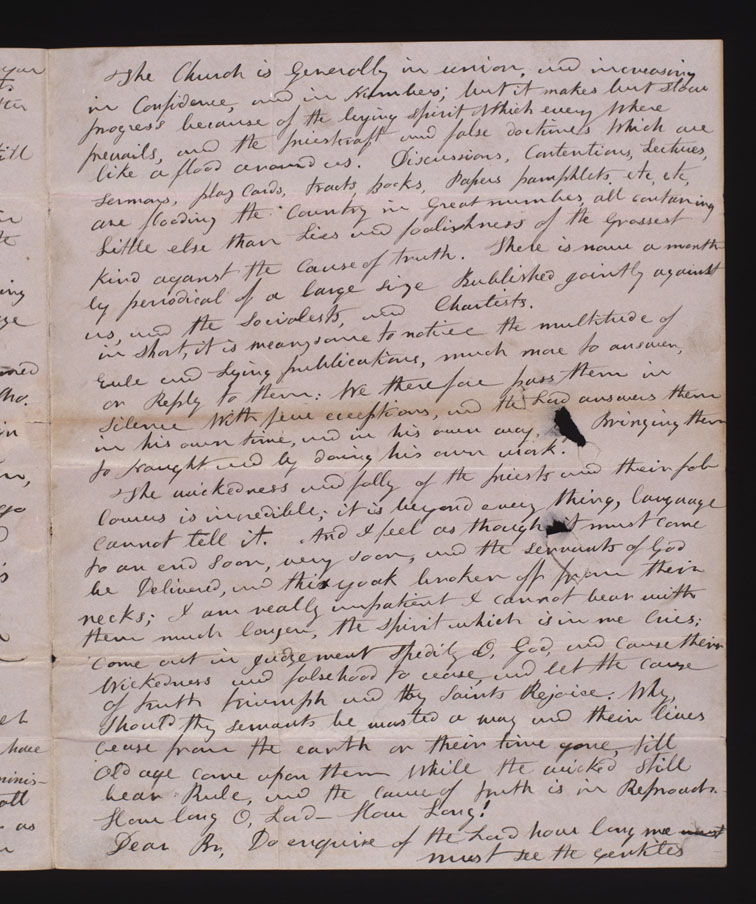 year
t.
till
ing
ge
med
in
go
have
minis-
as
The Church is Generally in union, and increasing
in Confidence, and in Numbers; but it makes but slow
progress because of the lying spirit which every where
prevails, and the priestcraft and false doctrines which are
like a flood around us. Discussions, Contentions, Lectures,
Sermons, play cards, tracts, books, Papers pamphlets, etc, etc,
are flooding the Country in Great number, all containing
Little else than Lies and foolishness of the Grossest
Kind against the Cause of truth. There is now a month-
ly periodical of a large size Published jointly against
us, and the Socialests, and Chartests.
in short, it is mean some to notice the multitude of
Evile and Lying publications, much more to answer,
or Reply to them: We therefore pass them in
Silence With few exceptions, and the Lord answers them
in his own time, and in his own way, Bringing them
to Naught and by doing his own work.
The wickedness and folly of the priests and their fol-
lowers is incredible; it is beyond every thing, language
cannot tell it. And I feel as though it must come
to an end Soon, very soon, and the servants of God
be Delivered, and this yoak broken off from their
necks; I am really impatient I cannot bear with
them much longer, the spirit which is in me cries;
come out in Judgement Spedily O, God, and cause their
Wickedness and falsehood to cease, and let the cause
of truth triumph and thy Saints Rejoice. Why,
Should thy servants be wasted a way and their lives
cease from the earth or their time gone, till
Old age come upon them While the wicked still
bear Rule, and the cause of truth is in Reproach.
How long O, Lord— How Long!
Dear Br, Do enquire of the Lord how long we must
must see the gentiles